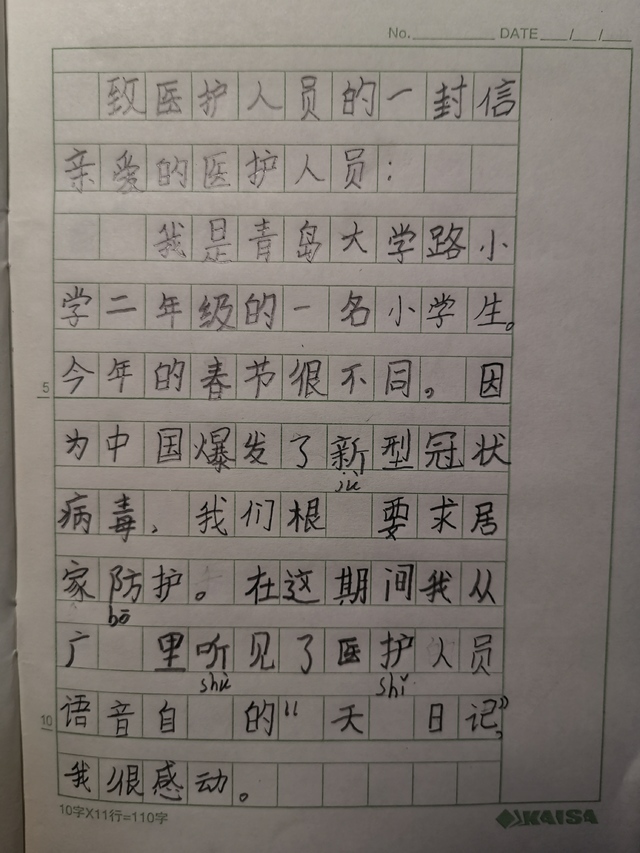 No. DATE / /
致医护人员的一封信
亲爱的医护人员:
我是青岛大学路小
学二年级的一名小学生。
今年的春节很不同。因
为中国爆发了新型冠状
病毒,我们根 要求居
jù
家防护。在这期间我从
广 里听见了医护人员
bō
语音自 的“ 天 日记”,
shù shí
我很感动。
5
10
10字X11行=110字
KAISA